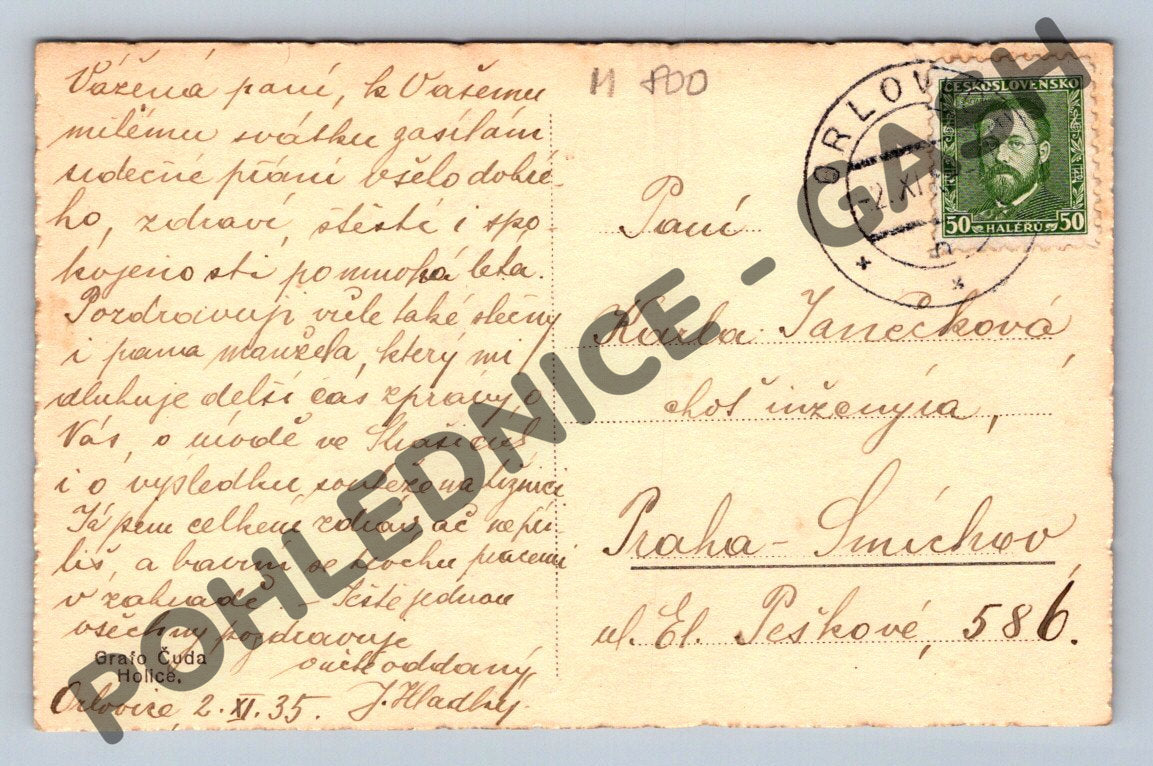 Vážená paní, k Vašemu
milému svátku zasílám
srdečné přání všelo dobré-
ho, zdraví, štěstí i spo-
kojenosti pomnohá léta.
Pozdravuji vřele také slečny
i pana manžela, který mi
dluhuje delší čas zprávy o
Vás, o úrodě ve
i o výsledku
Já jsem celkem zdráv, ač nepří-
liš, a bavím se trochu pracemi
v zahradě. – Ještě jednou
všechny pozdravuje
oddaný
J. Hladký.
Orlovice 2.XI.35.
Grafo Čuda
Holice.
M 800
ORLOVICE
-2.XI.35
ČESKOSLOVENSKO
50 HALÉŘŮ 50
Paní
Karla Janečková
choť inženýra,
Praha – Smíchov
ul. El. Peškové, 586.
POHLEDNICE - GASH